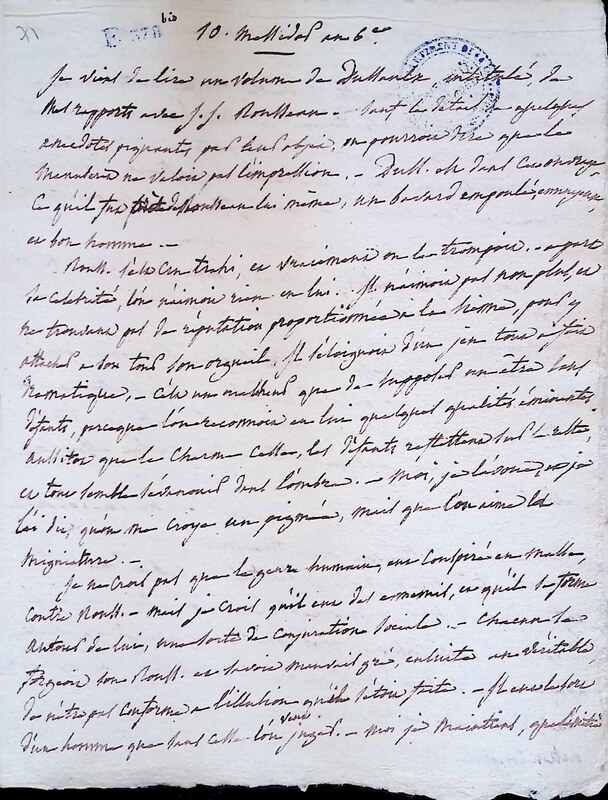 XI
E 378 bis
10. Messidor an 6e
Je viens de lire un volume de Dussaulx, intitulé, de
Mes rapports avec J. J. Rousseau. - Sauf le détail de quelques
anecdotes piquantes par leur objet, on pourroit dire que le
Manuscrit ne valoit pas l'impression. - Duss. est dans cet ouvrage
ce qu'il fut près de Rousseau lui même, un bavard empoulé, ennuyeux,
et bon homme. -
Rouss. s'est cru trahi, et vraiement on le trompoit. - a part
sa celebrité, l'on n'aimoit rien en lui. Il n'aimoit pas non plus, et
ne trouvant pas de réputation proportionnée à la sienne, pour y
attacher a son tour son orgueil, Il s'éloignoit d'un jeu tout a fait
dramatique. - C'est un malheur que de supposer un être sans
défauts, parceque l'on reconnoit en lui quelques qualités éminentes,
aussitot que le charme cesse, les défauts restent sur la
et tout semble s'évanouir dans l'ombre. - Moi, je l'avoue, et je
l'ai dit, qu'on me croye un pigmée, mais que l'on aime la
mignature. -
Je ne crois pas que le genre humain eut conspiré en masse,
contre Rouss. - Mais je crois qu'il eut des ennemis, et qu'il se forma
autour de lui, une sorte de conjuration sociale. - Chacun se
forgeoit son Rouss. et savoit mauvais gré, ensuite au véritable
de n'être pas conforme a l'illusion qu'il s'étoit faite. - Il en est de
d'un homme que dans celle l'on veut juger. - Moi je maintiens, que